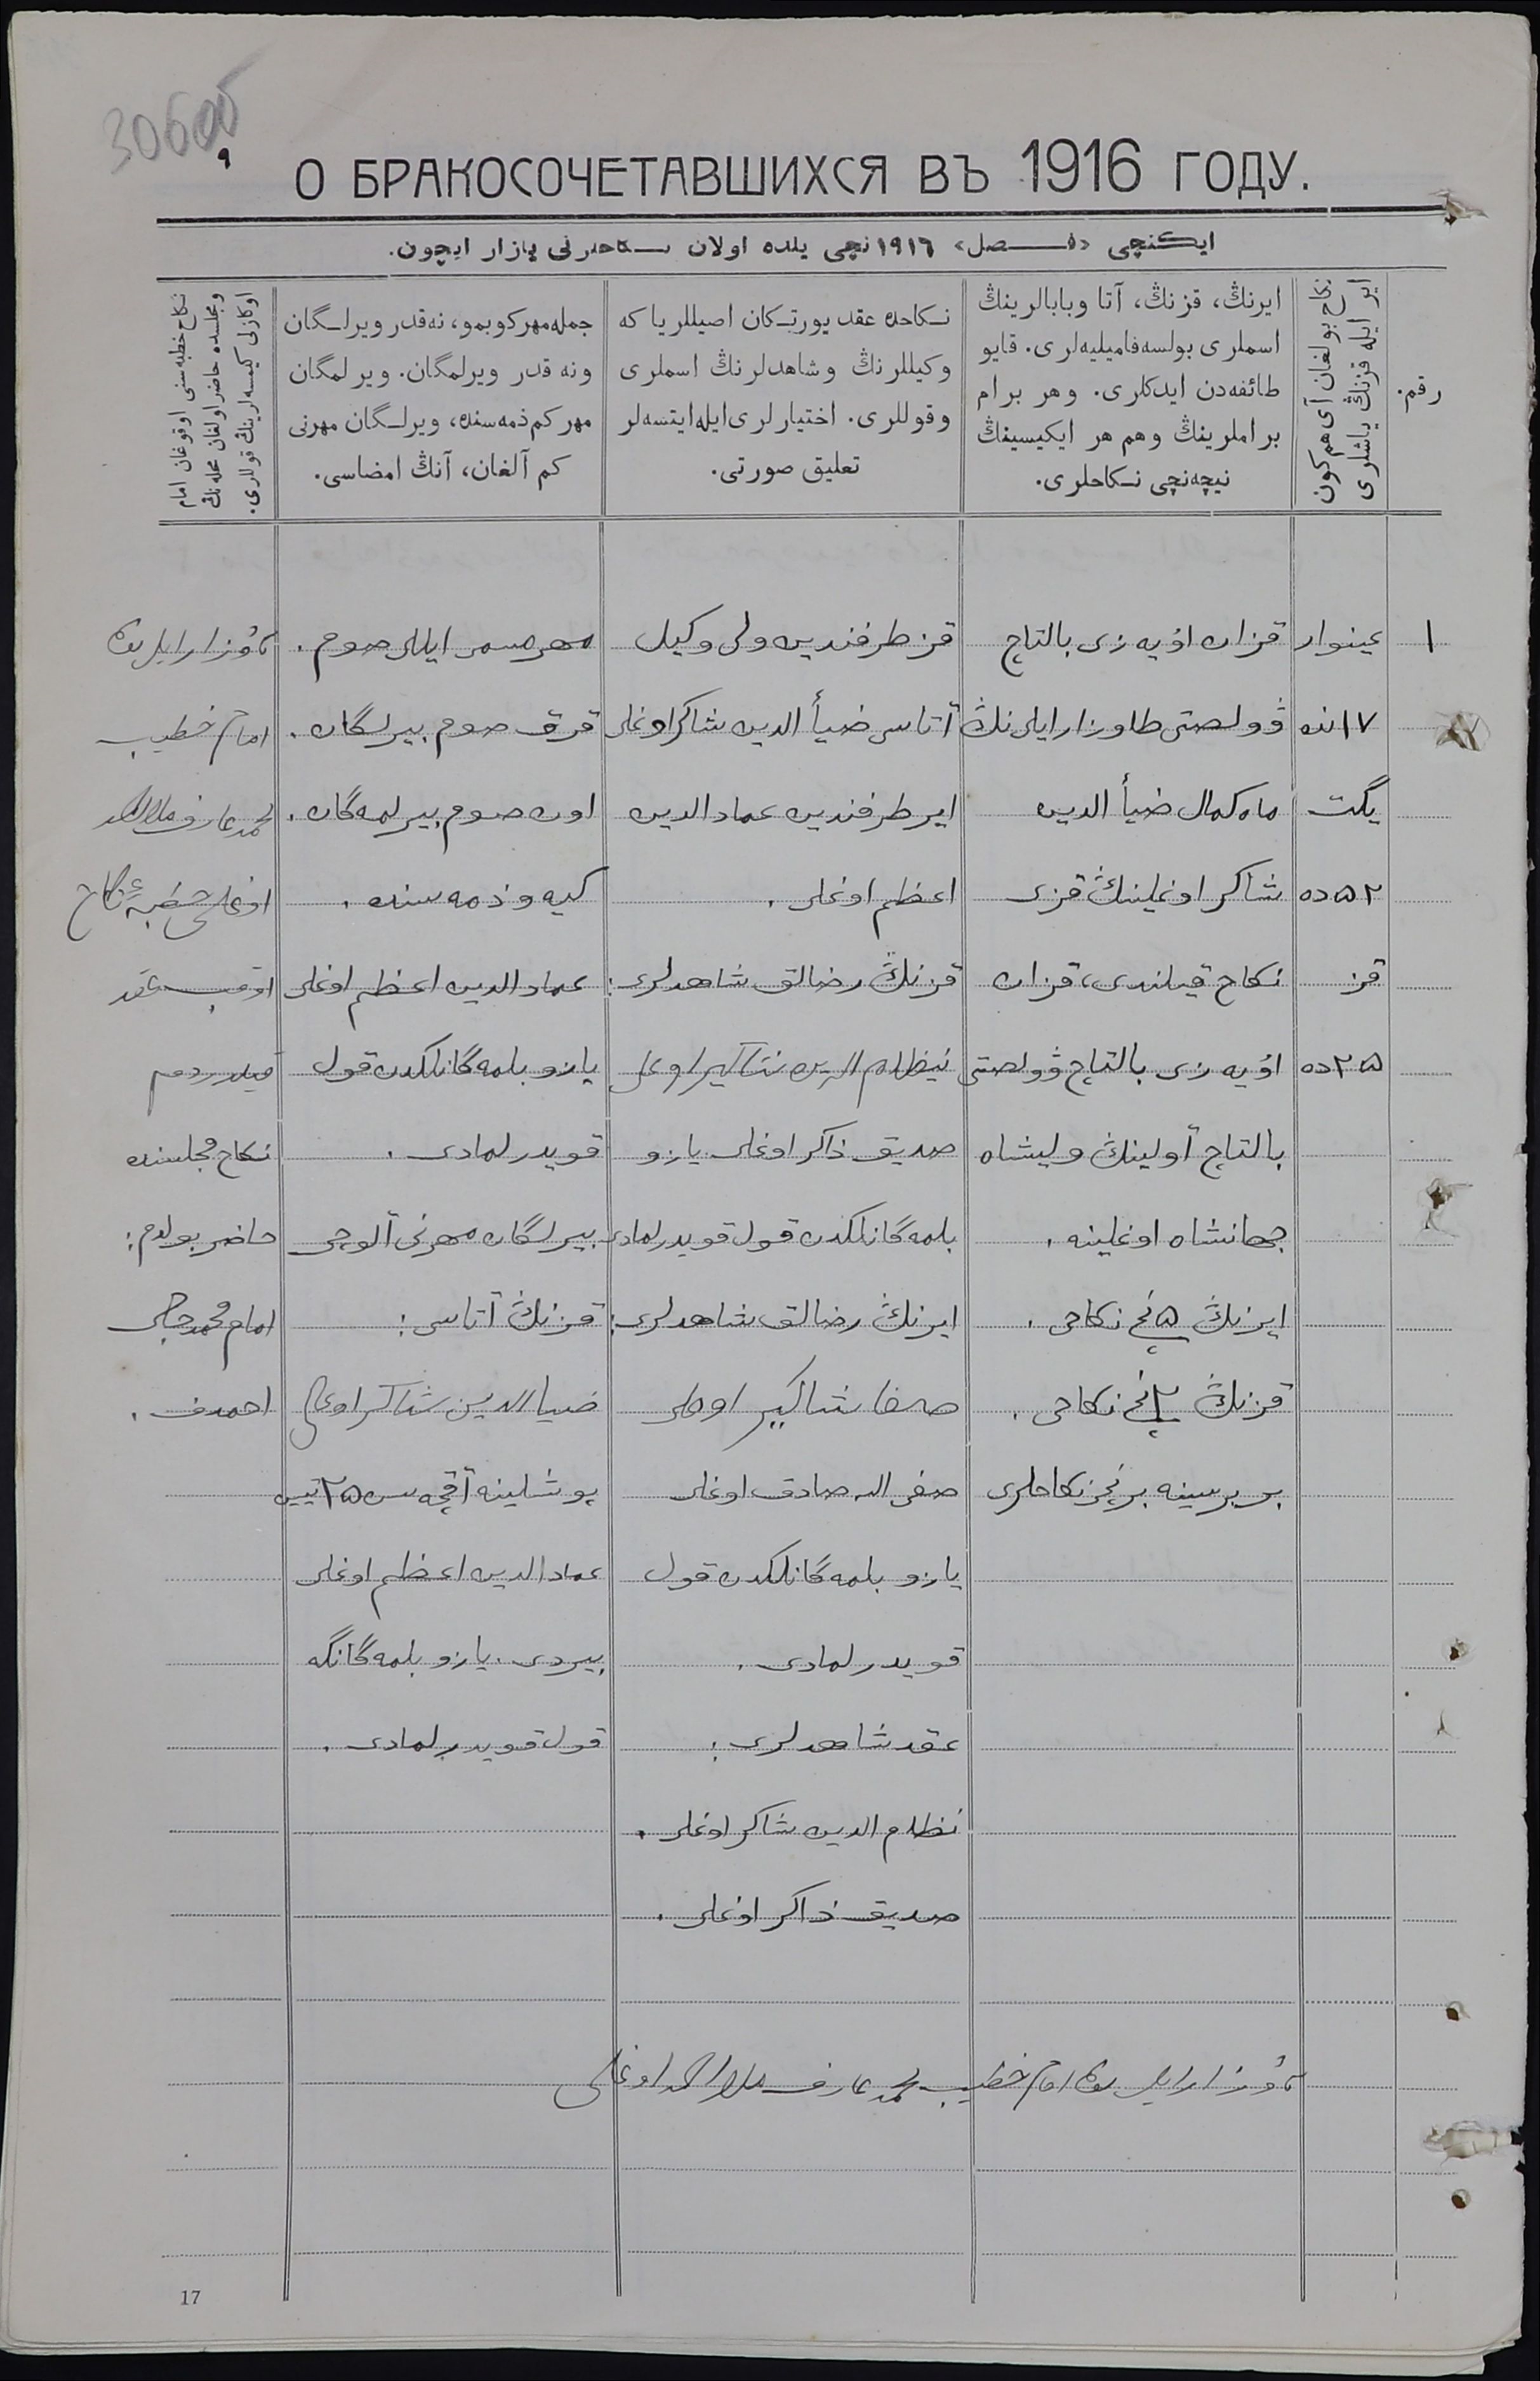 О БРАКОСОЧЕТАВШИХСЯ ВЪ 1916 ГОДУ.
ایكنچی «فصل» ١٩١٦ نچی یلده اولان نكاحلرنی یازار ایچون.
رقم.
نكاح بولغان آی هم كون
ایر ایله قزنڭ یاشلری
ایرنڭ، قزنڭ، آتا وبابالرینڭ
اسملری بولسه فامیلیه‌لری. قایو
طائفه‌دن ایدكلری. وهر برام
براملرینڭ وهم هر ایكیسینڭ
نیچه‌نچی نكاحلری.
نكاحده عقد یورتكان اصیللر یا كه
وكیللرنڭ وشاهدلرنڭ اسملری
وقوللری. اختیارلری ایله ایتسه‌لر
تعلیق صورتی.
جمله مهر كوبمو، نه قدر ویرلـگان
ونه قدر ویرلمگان. ویرلمگان
مهر كم ذمه‌سنده، ویرلـگان مهرنی
كم آلغان، آنڭ امضاسی.
نكاح خطبه‌سنی اوقوغان امام
ومجلسده حاضر اولغان محله‌نڭ
اوكازلی كیمسه‌لرینڭ قوللری.
١
غینوار
١٧ نده
یگت
٥٢ ده
قز
٢٥ ده
قزان اؤیه زی بالتاچ
ڤولصتی طاوزار ایلی نڭ
ماه كمال ضیأ الدین
شاكر اوغلینڭ قزی
نكاح قیلندی، قزان
اؤیه زی بالتاچ ڤولصتی
بالتاچ آولینڭ ولیشاه
جهانشاه اوغلینه.
ایرنڭ ٥ نچی نكاحی.
قزنڭ ٢ نچی نكاحی.
بر برسینه برنچی نكاحلری
قز طرفندین ولی وكیل
آتاسی ضیأ الدین شاكر اوغلی
ایر طرفندین عماد الدین
اعظم اوغلی.
قزنڭ رضالق شاهدلری:
نیظام الدین شاكیر اوغلی
صدیق ذاكر اوغلی یازو
بلمه‌گانلكدن قول قویدرلمادی
ایرنڭ رضالق شاهدلری:
صفا شاكیر اوغلی
صفی الله صادق اوغلی
یازو بلمه‌گانلكدن قول
قویدرلمادی.
عقد شاهدلری:
نظام الدین شاكر اوغلی.
صدیق ذاكر اوغلی.
مهر مسمی ایللی صوم.
قرق صوم بیرلگان.
اون صوم بیرلمه‌گان.
كیه‌و ذمه‌سنده.
عماد الدین اعظم اوغلی
یازو بلمه‌گانلكدن قول
قویدرلمادی.
بیرلگان مهرنی آلوچی
قزنڭ آتاسی:
ضیا الدین شاكر اوغلی
پوشلینه آقچه‌سی ٢٥ تین
عماد الدین اعظم اوغلی
بیردی. یازو بلمه‌گانگه
قول قویدرلمادی.
امام خطیب
محمد عارف ملا احمد
اوغلی خطبهٔ نكاح
اوقب عقد
قیلدردم
نكاح مجلسنده
حاضر بولدم:
امام محمدجان
احمدف.
امام خطیب محمد عارف ملا احمد اوغلی
17